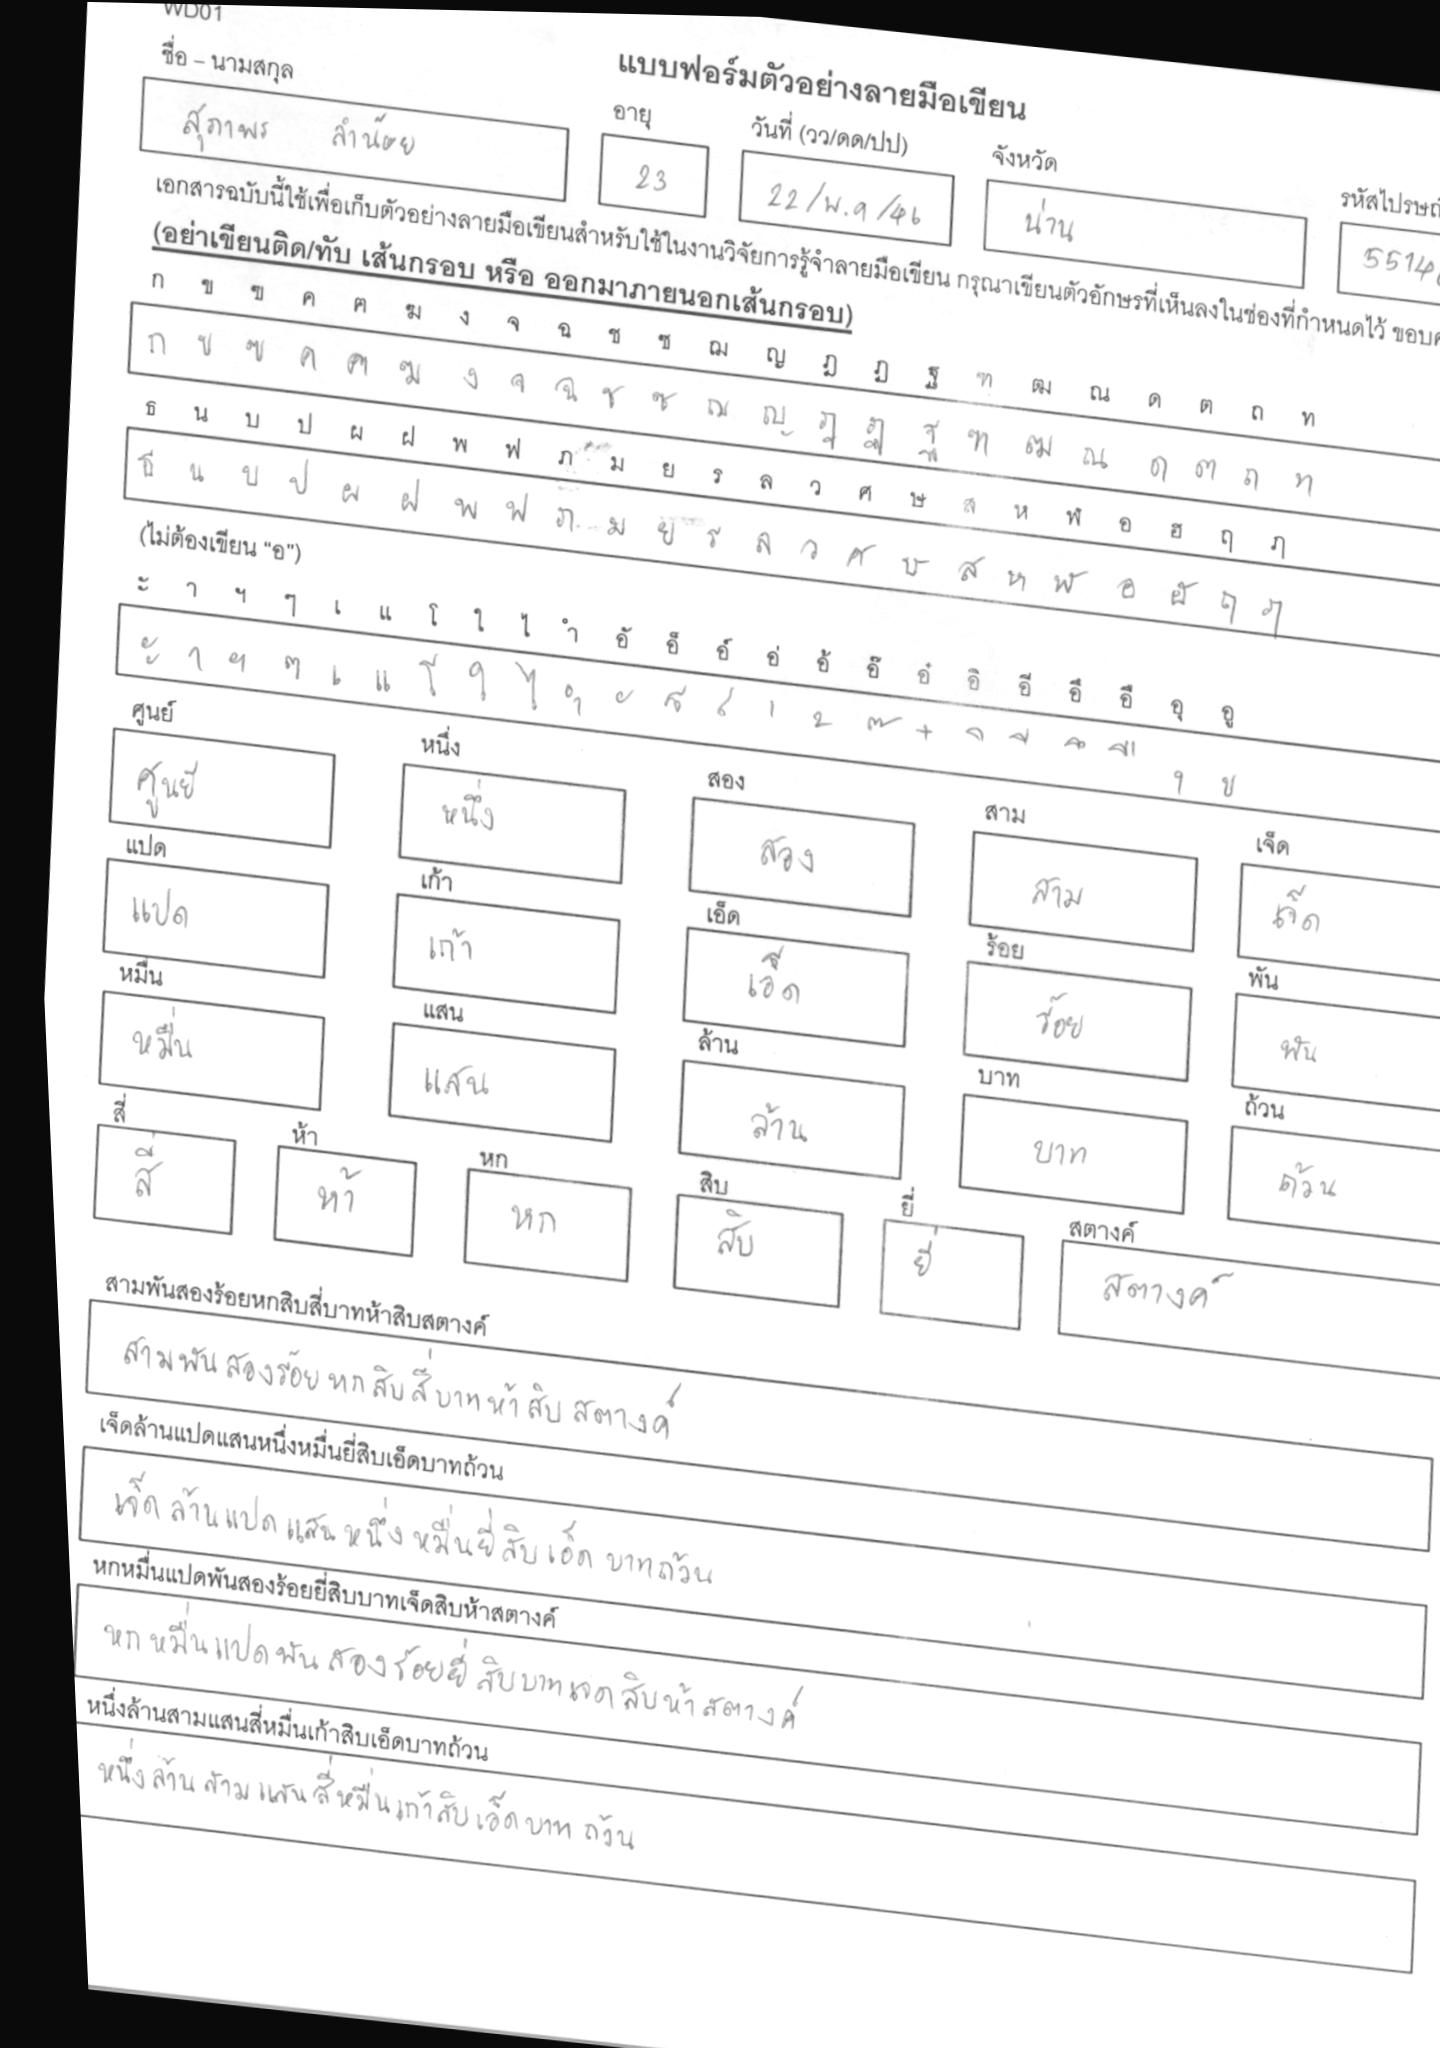 WD01
แบบฟอร์มตัวอย่างลายมือเขียน
ชื่อ – นามสกุล อายุ วันที่ (วว/ดด/ปป) จังหวัด
สุภาพร 23 น่าน
เอกสารฉบับนี้ใช้เพื่อเก็บตัวอย่างลายมือเขียนสำหรับใช้ในงานวิจัยการรู้จำลายมือเขียน กรุณาเขียนตัวอักษรที่เห็นลงในช่องที่กำหนดไว้
(อย่าเขียนติด/ทับ เส้นกรอบ หรือ ออกมาภายนอกเส้นกรอบ)
ก ข ฃ ค ฅ ฆ ง จ ฉ ช ซ ฌ ญ ฎ ฏ ฐ ฑ ฒ ณ ด ต ถ ท
ก ข ฃ ค ฅ ฆ ง จ ฉ ช ซ ฌ ญ ฎ ฏ ฐ ฑ ฒ ณ ด ต ถ ท
ธ น บ ป ผ ฝ พ ฟ ภ ม ย ร ล ว ศ ษ ส ห ฬ อ ฮ ฤ ฦ
ธ น บ ป ผ ฝ พ ฟ ภ ม ย ร ล ว ศ ษ ส ห ฬ อ ฮ ฤ ฦ
(ไม่ต้องเขียน “อ”)
ะ า ฯ ๆ เ แ โ ใ ไ ำ อั อ็ อ์ อ่ อ้ อ๊ อ๋ อิ อี อึ อื อุ อู
ะ า ฯ ๆ เ แ โ ใ ไ ำ ั ็ ์ ่ ้ ๊ ๋ ิ ี ึ ื ุ ู
ศูนย์ หนึ่ง สอง สาม เจ็ด
ศูนย์ หนึ่ง สอง สาม เจ็ด
แปด เก้า เอ็ด ร้อย พัน
แปด เก้า เอ็ด ร้อย พัน
หมื่น แสน ล้าน บาท ถ้วน
หมื่น แสน ล้าน บาท ถ้วน
สี่ ห้า หก สิบ ยี่ สตางค์
สี่ ห้า หก สิบ ยี่ สตางค์
สามพันสองร้อยหกสิบสี่บาทห้าสิบสตางค์
สามพัน สองร้อย หก สิบ สี่ บาท ห้า สิบ สตางค์
เจ็ดล้านแปดแสนหนึ่งหมื่นยี่สิบเอ็ดบาทถ้วน
เจ็ด ล้าน แปด แสน หนึ่ง หมื่น ยี่ สิบ เอ็ด บาท ถ้วน
หกหมื่นแปดพันสองร้อยยี่สิบบาทเจ็ดสิบห้าสตางค์
หก หมื่น แปด พัน สอง ร้อย ยี่ สิบ บาท เจด สิบ ห้า สตางค์
หนึ่งล้านสามแสนสี่หมื่นเก้าสิบเอ็ดบาทถ้วน
หนึ่ง ล้าน สาม แสน สี่ หมื่น เก้า สิบ เอ็ด บาท ถ้วน